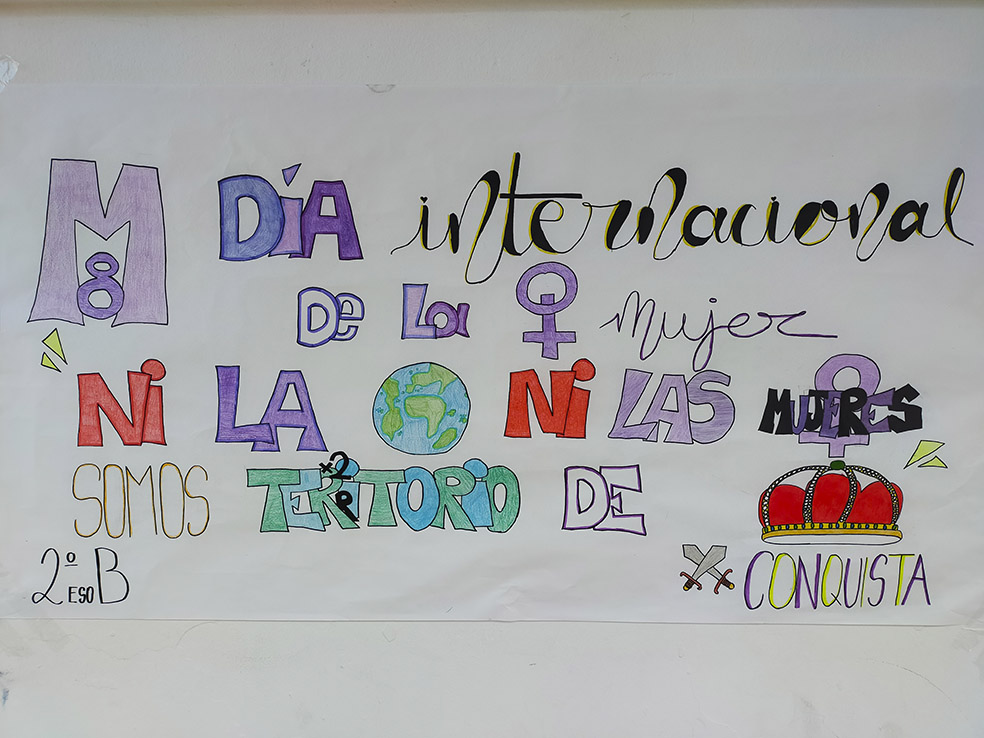 M8 DÍA internacional
De La mujer
Ni LA Ni LAS MUJERES
SOMOS TERRITORIO x2 DE
2º ESO B CONQUISTA